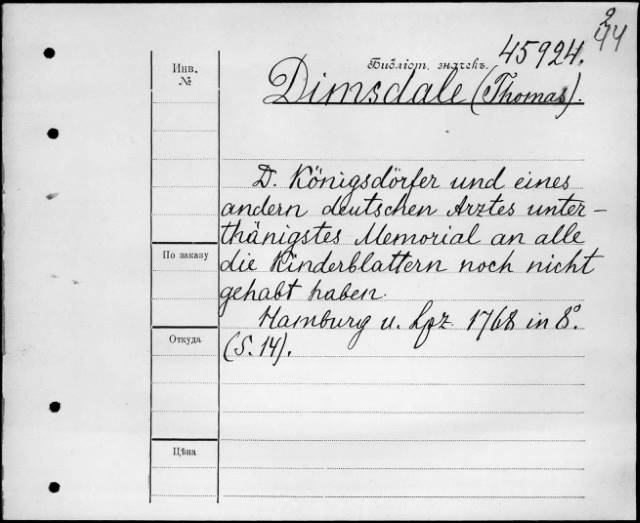 2
44
45924.
Инв.
№
Библіот. значекъ.
Dimsdale (Thomas).
D. Königsdörfer und eines
andern deutschen Arztes unter-
thänigstes Memorial an alle
die Kinderblattern noch nicht
gehabt haben.
Hamburg u. Lpz. 1768 in 8°.
(S. 14).
По заказу
Откуда
Цѣна